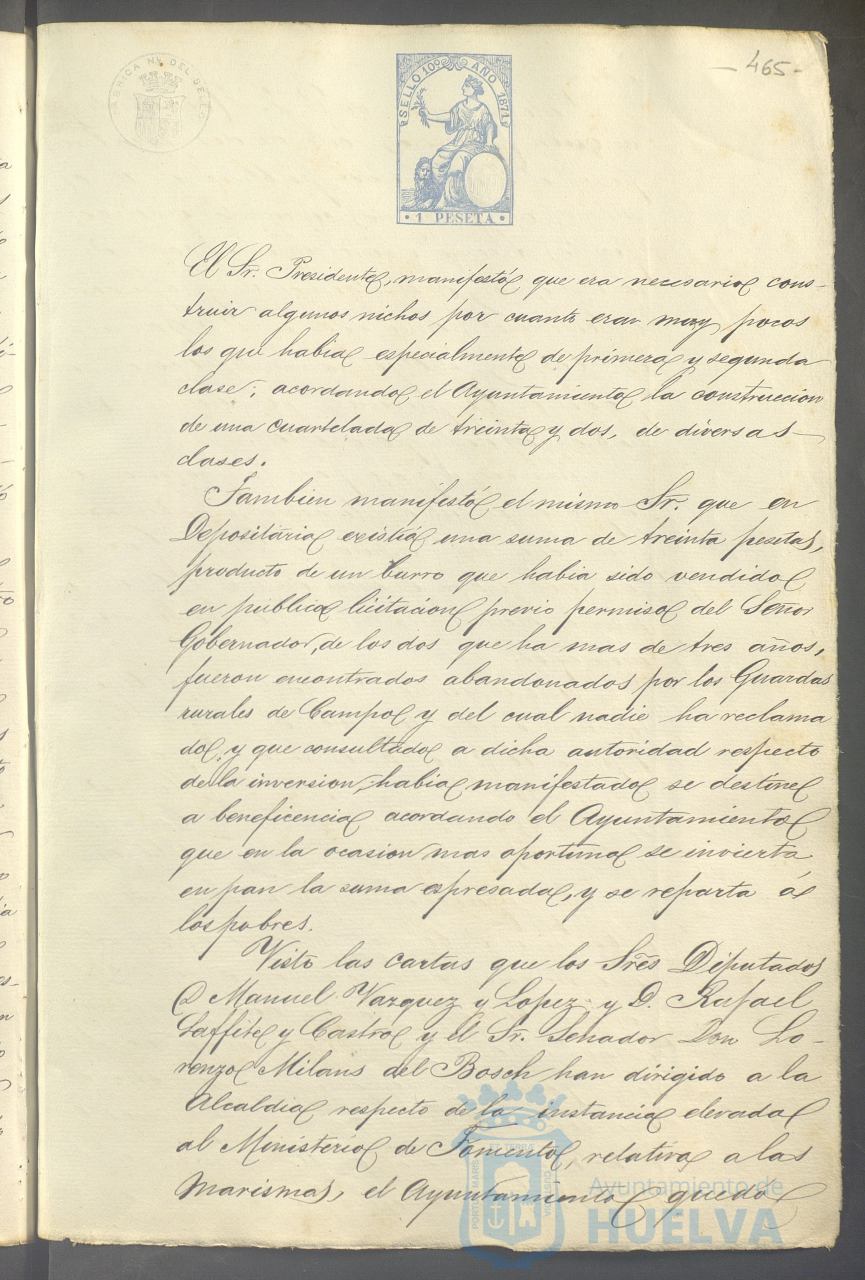 FABRICA Nl. DEL SELLO
SELLO 10º AÑO 1871
1 PESETA
- 465 -
El Sr. Presidente, manifestó que era necesario cons-
truir algunos nichos por cuanto eran muy pocos
los que habia especialmente de primera y segunda
clase; acordando el Ayuntamiento la construccion
de una cuartelada de treinta y dos, de diversas
clases.
Tambien manifestó el mismo Sr. que en
Depositaria existia una suma de treinta pesetas,
producto de un burro que habia sido vendido
en publica licitacion previo permiso del Señor
Gobernador, de los dos que ha mas de tres años,
fueron encontrados abandonados por los Guardas
rurales de Campo y del cual nadie ha reclama
do, y que consultado a dicha autoridad respecto
de la inversion, habia manifestado se destine
a beneficencia acordando el Ayuntamiento
que en la ocasion mas oportuna se invierta
en pan la suma espresada, y se reparta á
los pobres.
Visto las cartas que los Sres Diputados
D Manuel Vazquez y Lopez y D. Rafael
Laffite y Castro y el Sr. Senador Don Lo-
renzo Milans del Bosch han dirigido a la
Alcaldia respecto de la instancia elevada
al Ministerio de Fomento, relativa a las
Marismas, el Ayuntamiento quedo
Ayuntamiento de
HUELVA